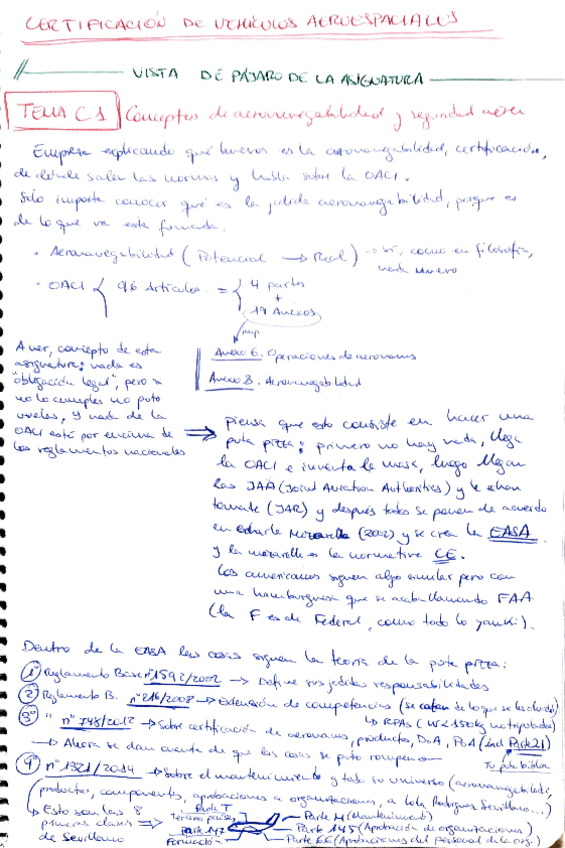 CERTIFICACIÓN DE VEHÍCULOS AEROESPACIALES
VISTA DE PÁJARO DE LA ASIGNATURA
TEMA C.1 Conceptos de aeronavegabilidad y seguridad aérea
Empresa explicando qué huevos es la aeronavegabilidad, certificación,
de dónde salen las normas y habla sobre la OACI.
Solo importa conocer qué es la jodida aeronavegabilidad, porque es
de lo que va esta
· Aeronavegabilidad (Potencial → Real) sí, como en filosofía,
nada nuevo
· OACI { 96 Artículos = { 4 partes
+
19 Anexos
Anexo 6. Operaciones de aeronaves
Anexo 8. Aeronavegabilidad
A ver, concepto de esta
asignatura: nada es
"obligación legal", pero si
no lo cumples no puto
vuelas, y nada de la
OACI está por encima de
los reglamentos nacionales
⇒ piensa que esto consiste en hacer una
puta pizza: primero no hay nada, llega
la OACI e inventa la masa, luego llegan
las JAA (Joint Aviation Authorities) y le echan
tomate (JAR) y después todos se ponen de acuerdo
en echarle mozarella (2002) y se crea la EASA
y la mozarella es la normativa CE.
Los americanos siguen algo similar pero con
una hamburguesa que se acaba llamando FAA
(la F es de Federal, como todo lo yanki).
Dentro de la EASA las cosas siguen la teoría de la puta pizza:
1º Reglamento Base nº 1592/2002 → Define sus jodidas responsabilidades
2º Reglamento B. nº 216/2008 → Extensión de competencias (se de lo que se les olvidó)
↳ RPAs (W < 150kg no tripulados)
3º " nº 748/2012 → Sobre certificación de aeronaves, productos, DoA, PoA (incl Parte 21)
→ Ahora se dan cuenta de que las cosas se puto rompen
Tu puta biblia
4º nº 1321/2014 → Sobre el mantenimiento y todo su universo (aeronavegabilidad,
productos, componentes, aprobaciones a organizaciones, a Lola Rodríguez Sevillano...)
↳ Esto son las 8
primeras clases ⇒
de Sevillano
Parte T
Terceros países
Parte 147
Formación
Parte M (Mantenimiento)
Parte 145 (Aprobación de organizaciones)
Parte 66 (Aprobaciones del personal de la org.)